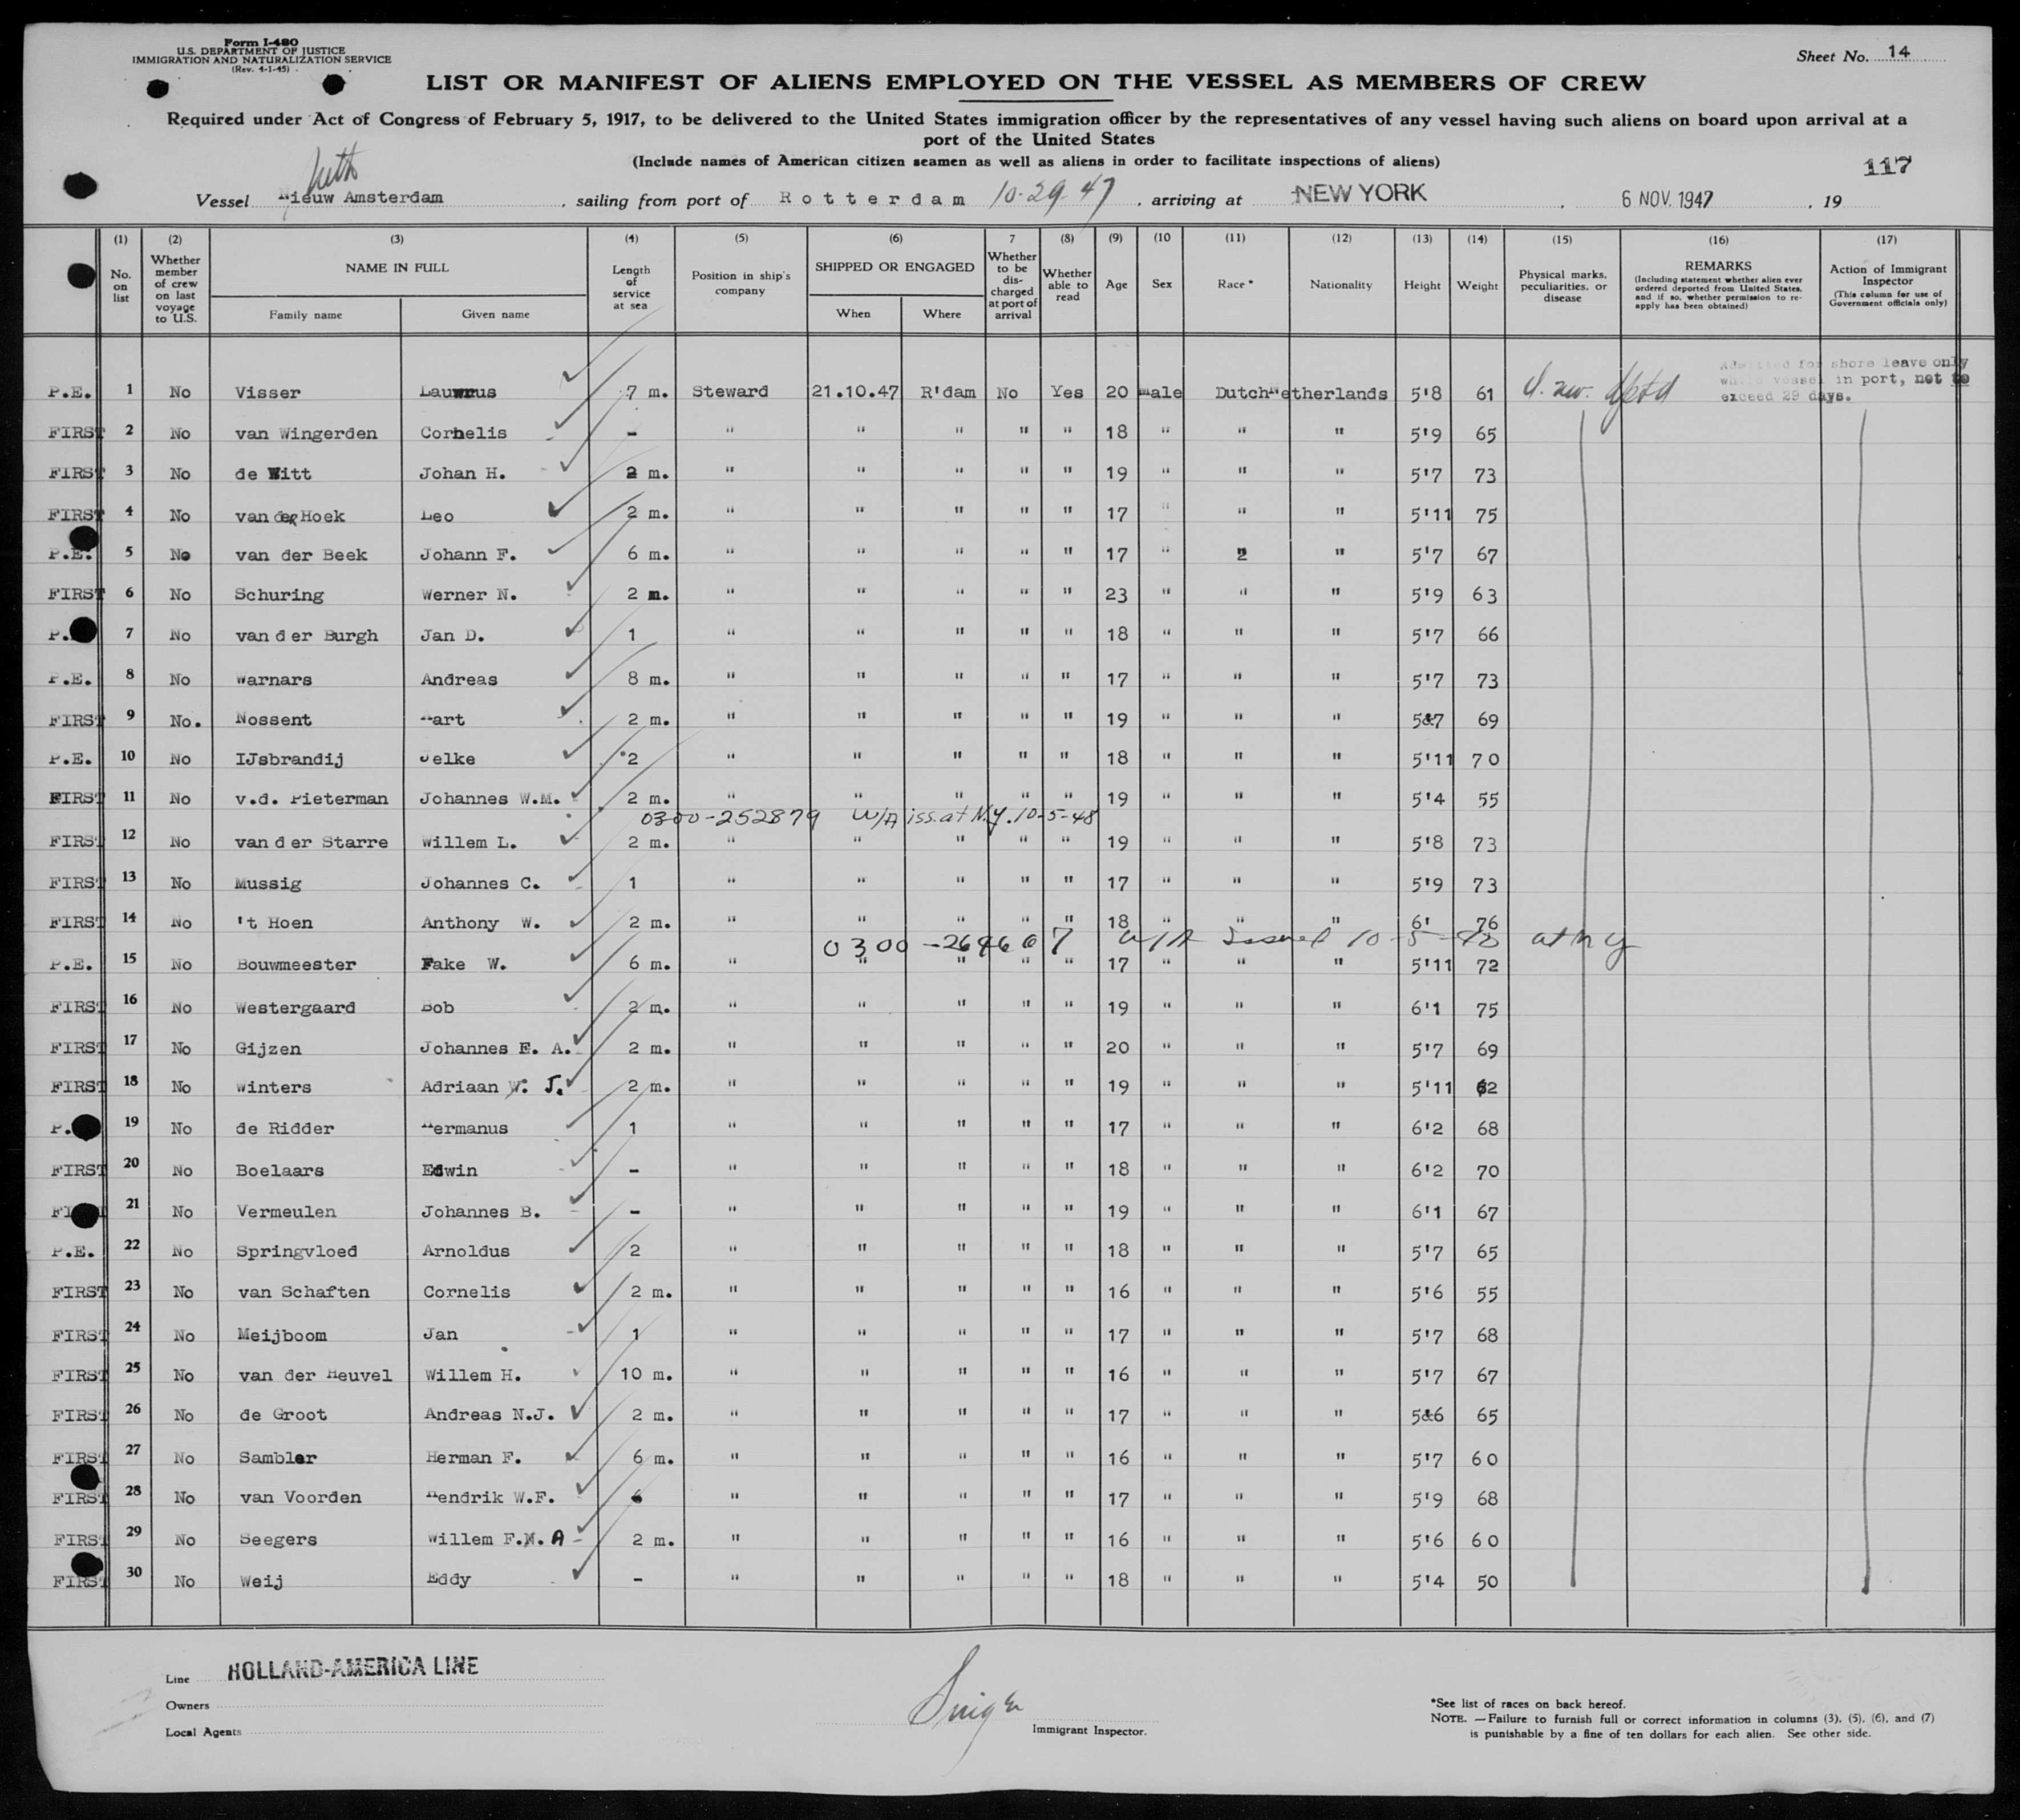 Form I-480
U.S. DEPARTMENT OF JUSTICE
IMMIGRATION AND NATURALIZATION SERVICE
(Rev. 4-1-45)
Sheet No. 14
LIST OR MANIFEST OF ALIENS EMPLOYED ON THE VESSEL AS MEMBERS OF CREW
Required under Act of Congress of February 5, 1917, to be delivered to the United States immigration officer by the representatives of any vessel having such aliens on board upon arrival at a
port of the United States
(Include names of American citizen seamen as well as aliens in order to facilitate inspections of aliens)
117
Vessel Nieuw Amsterdam, sailing from port of Rotterdam 10-29-47, arriving at NEW YORK, 6 NOV. 1947, 19
(1) (2) (3) (4) (5) (6) 7 (8) (9) (10 (11) (12) (13) (14) (15) (16) (17)
No. on list
Whether member of crew on last voyage to U.S.
NAME IN FULL
Family name
Given name
Length of service at sea
Position in ship's company
SHIPPED OR ENGAGED
When
Where
Whether to be discharged at port of arrival
Whether able to read
Age
Sex
Race*
Nationality
Height
Weight
Physical marks, peculiarities, or disease
REMARKS
(Including statement whether alien ever ordered deported from United States, and if so, whether permission to re-apply has been obtained)
Action of Immigrant Inspector
(This column for use of Government officials only)
Admitted for shore leave only
while vessel in port, not to
exceed 29 days.
P.E. 1 No Visser Laurus 7 m. Steward 21.10.47 R'dam No Yes 20 male Dutch Netherlands 5'8 61
FIRST 2 No van Wingerden Cornelis - " " " " " 18 " " " 5'9 65
FIRST 3 No de Witt Johan H. 2 m. " " " " " 19 " " " 5'7 73
FIRST 4 No van der Hoek Leo 2 m. " " " " " 17 " " " 5'11 75
P.E. 5 No van der Beek Johann F. 6 m. " " " " " 17 " 2 " 5'7 67
FIRST 6 No Schuring Werner N. 2 m. " " " " " 23 " " " 5'9 63
P. 7 No van der Burgh Jan D. 1 " " " " " 18 " " " 5'7 66
P.E. 8 No Warnars Andreas 8 m. " " " " " 17 " " " 5'7 73
FIRST 9 No. Nossent art 2 m. " " " " " 19 " " " 5&7 69
P.E. 10 No IJsbrandij Jelke 2 " " " " " 18 " " " 5'11 70
FIRST 11 No v.d. Pieterman Johannes W.M. 2 m. " " " " " 19 " " " 5'4 55
0300-252879 W/A iss. at N.Y. 10-5-48
FIRST 12 No van der Starre Willem L. 2 m. " " " " " 19 " " " 5'8 73
FIRST 13 No Mussig Johannes C. 1 " " " " " 17 " " " 5'9 73
FIRST 14 No 't Hoen Anthony W. 2 m. " " " " " 18 " " " 6' 76
W/A Issued at NY
P.E. 15 No Bouwmeester Fake W. 6 m. " " " " " 17 " " " 5'11 72
FIRST 16 No Westergaard Bob 2 m. " " " " " 19 " " " 6'1 75
FIRST 17 No Gijzen Johannes E. A. 2 m. " " " " " 20 " " " 5'7 69
FIRST 18 No Winters Adriaan W. J. 2 m. " " " " " 19 " " " 5'11 62
P. 19 No de Ridder Hermanus 1 " " " " " 17 " " " 6'2 68
FIRST 20 No Boelaars Edwin - " " " " " 18 " " " 6'2 70
FIRST 21 No Vermeulen Johannes B. - " " " " " 19 " " " 6'1 67
P.E. 22 No Springvloed Arnoldus 2 " " " " " 18 " " " 5'7 65
FIRST 23 No van Schaften Cornelis 2 m. " " " " " 16 " " " 5'6 55
FIRST 24 No Meijboom Jan 1 " " " " " 17 " " " 5'7 68
FIRST 25 No van der Heuvel Willem H. 10 m. " " " " " 16 " " " 5'7 67
FIRST 26 No de Groot Andreas N.J. 2 m. " " " " " 17 " " " 5&6 65
FIRST 27 No Sambler Herman F. 6 m. " " " " " 16 " " " 5'7 60
FIRST 28 No van Voorden Hendrik W.F. " " " " " 17 " " " 5'9 68
FIRST 29 No Seegers Willem F.M. A 2 m. " " " " " 16 " " " 5'6 60
FIRST 30 No Weij Eddy - " " " " " 18 " " " 5'4 50
Line HOLLAND-AMERICA LINE
Owners
Local Agents
Immigrant Inspector.
*See list of races on back hereof.
NOTE.—Failure to furnish full or correct information in columns (3), (5), (6), and (7)
is punishable by a fine of ten dollars for each alien. See other side.